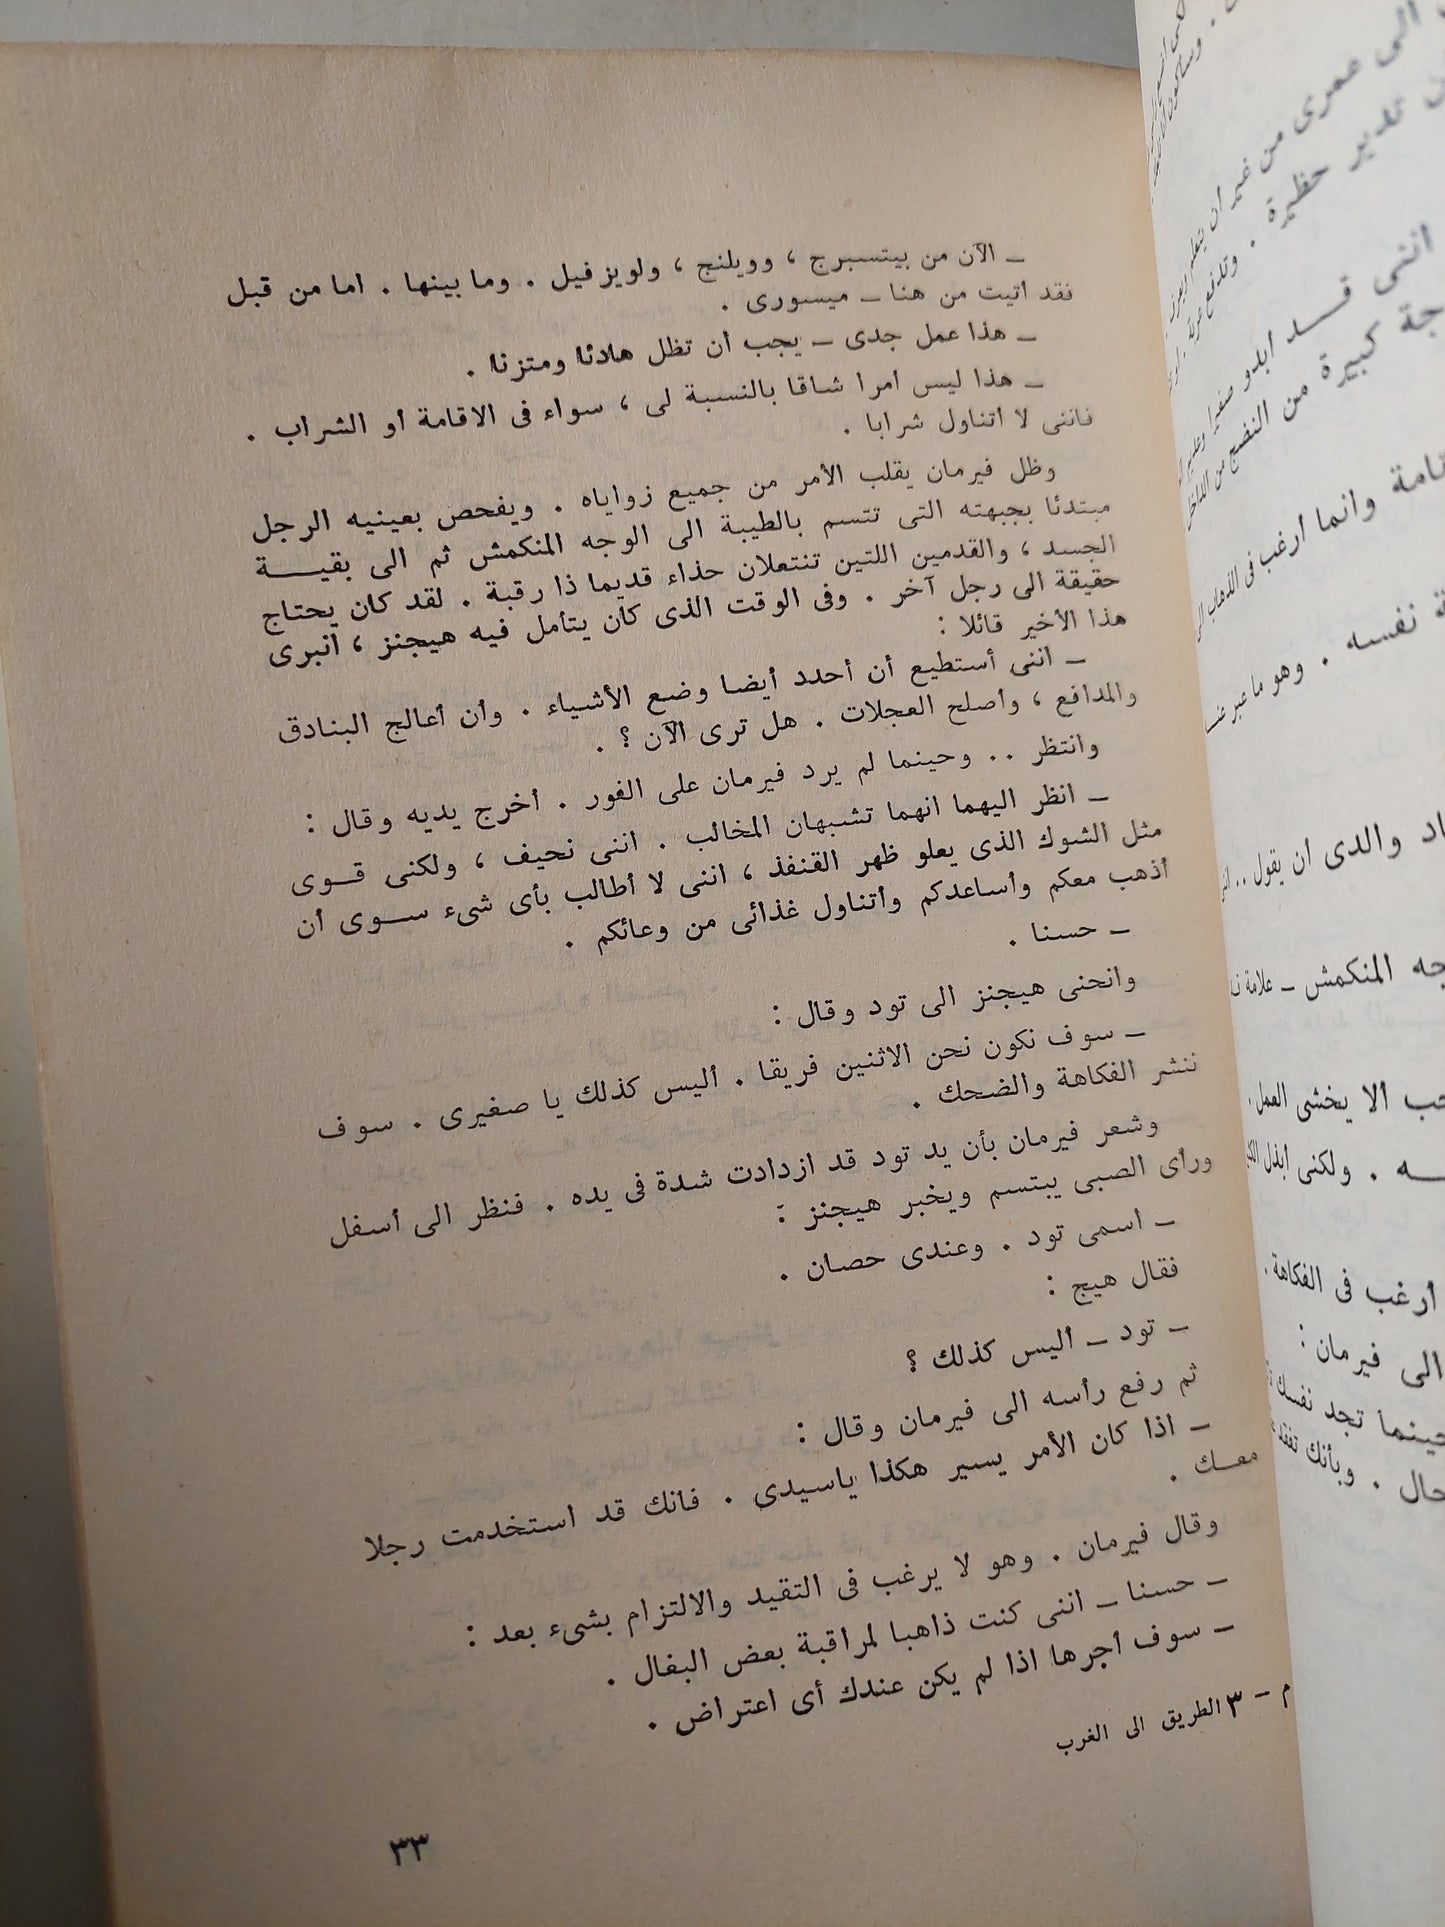 ـ الآن من بيتسبرج ، وويلنج ، ولويزفيل . وما بينها . اما من قبل
نقد اتيت من هنا ـ ميسورى .
ـ هذا عمل جدى ـ يجب أن تظل هادئا ومتزنا .
ـ هذا ليس امرا شاقا بالنسبة لى ، سواء فى الاقامة أو الشراب .
فاننى لا أتناول شرابا .
وظل فيرمان يقلب الأمر من جميع زواياه . ويفحص بعينيه الرجل
مبتدئا بجبهته التى تتسم بالطيبة الى الوجه المنكمش ثم الى بقيـــة
الجسد ، والقدمين اللتين تنتعلان حذاء قديما ذا رقبة . لقد كان يحتاج
حقيقة الى رجل آخر . وفى الوقت الذى كان يتأمل فيه هيجنز ، أنبرى
هذا الأخير قائلا :
ـ اننى أستطيع أن أحدد أيضا وضع الأشياء . وأن أعالج البنادق
والمدافع ، وأصلح العجلات . هل ترى الآن ؟ .
وانتظر .. وحينما لم يرد فيرمان على الفور . أخرج يديه وقال :
ـ انظر اليهما انهما تشبهان المخالب . اننى نحيف ، ولكنى قــوى
مثل الشوك الذى يعلو ظهر القنفذ ، اننى لا أطالب بأى شىء ســوى أن
أذهب معكم وأساعدكم وأتناول غذائى من وعائكم .
ـ حسنا .
وانحنى هيجنز الى تود وقال :
ـ سوف نكون نحن الاثنين فريقا . أليس كذلك يا صغيرى . سوف
ننشر الفكاهة والضحك .
وشعر فيرمان بأن يد تود قد ازدادت شدة فى يده . فنظر الى أسفل
ورأى الصبى يبتسم ويخبر هيجنز :
ـ اسمى تود . وعندى حصان .
فقال هيج :
ـ تود ـ أليس كذلك ؟
ثم رفع رأسه الى فيرمان وقال :
ـ اذا كان الأمر يسير هكذا ياسيدى . فانك قد استخدمت رجلا
معــك .
وقال فيرمان . وهو لا يرغب فى التقيد والالتزام بشىء بعد :
ـ حسنا ـ اننى كنت ذاهبا لمراقبة بعض البغال .
ـ سوف أجرها اذا لم يكن عندك أى اعتراض .
م ـ ٣ الطريق الى الغرب
٣٣
الى عمرى من غير أن يتعلم
تدير حظيرة .
اننى قــد أبدو صغيرا
جة كبيرة من النضج من الداخل
وانما أرغب فى الذهاب الى
نفسه . وهو ما عبر عنــه
والدى أن يقول ..
المنكمش ـ علامة
ألا يخشى العمل .
ــه . ولكنى أبذل
أرغب فى الفكاهة .
الى فيرمان :
تجد نفسك
حال . وبأنك تفقد